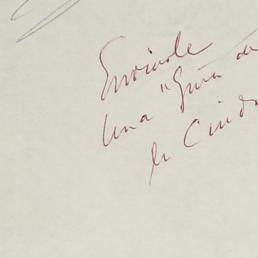 Enviarle
una "Guía de
la Ciud